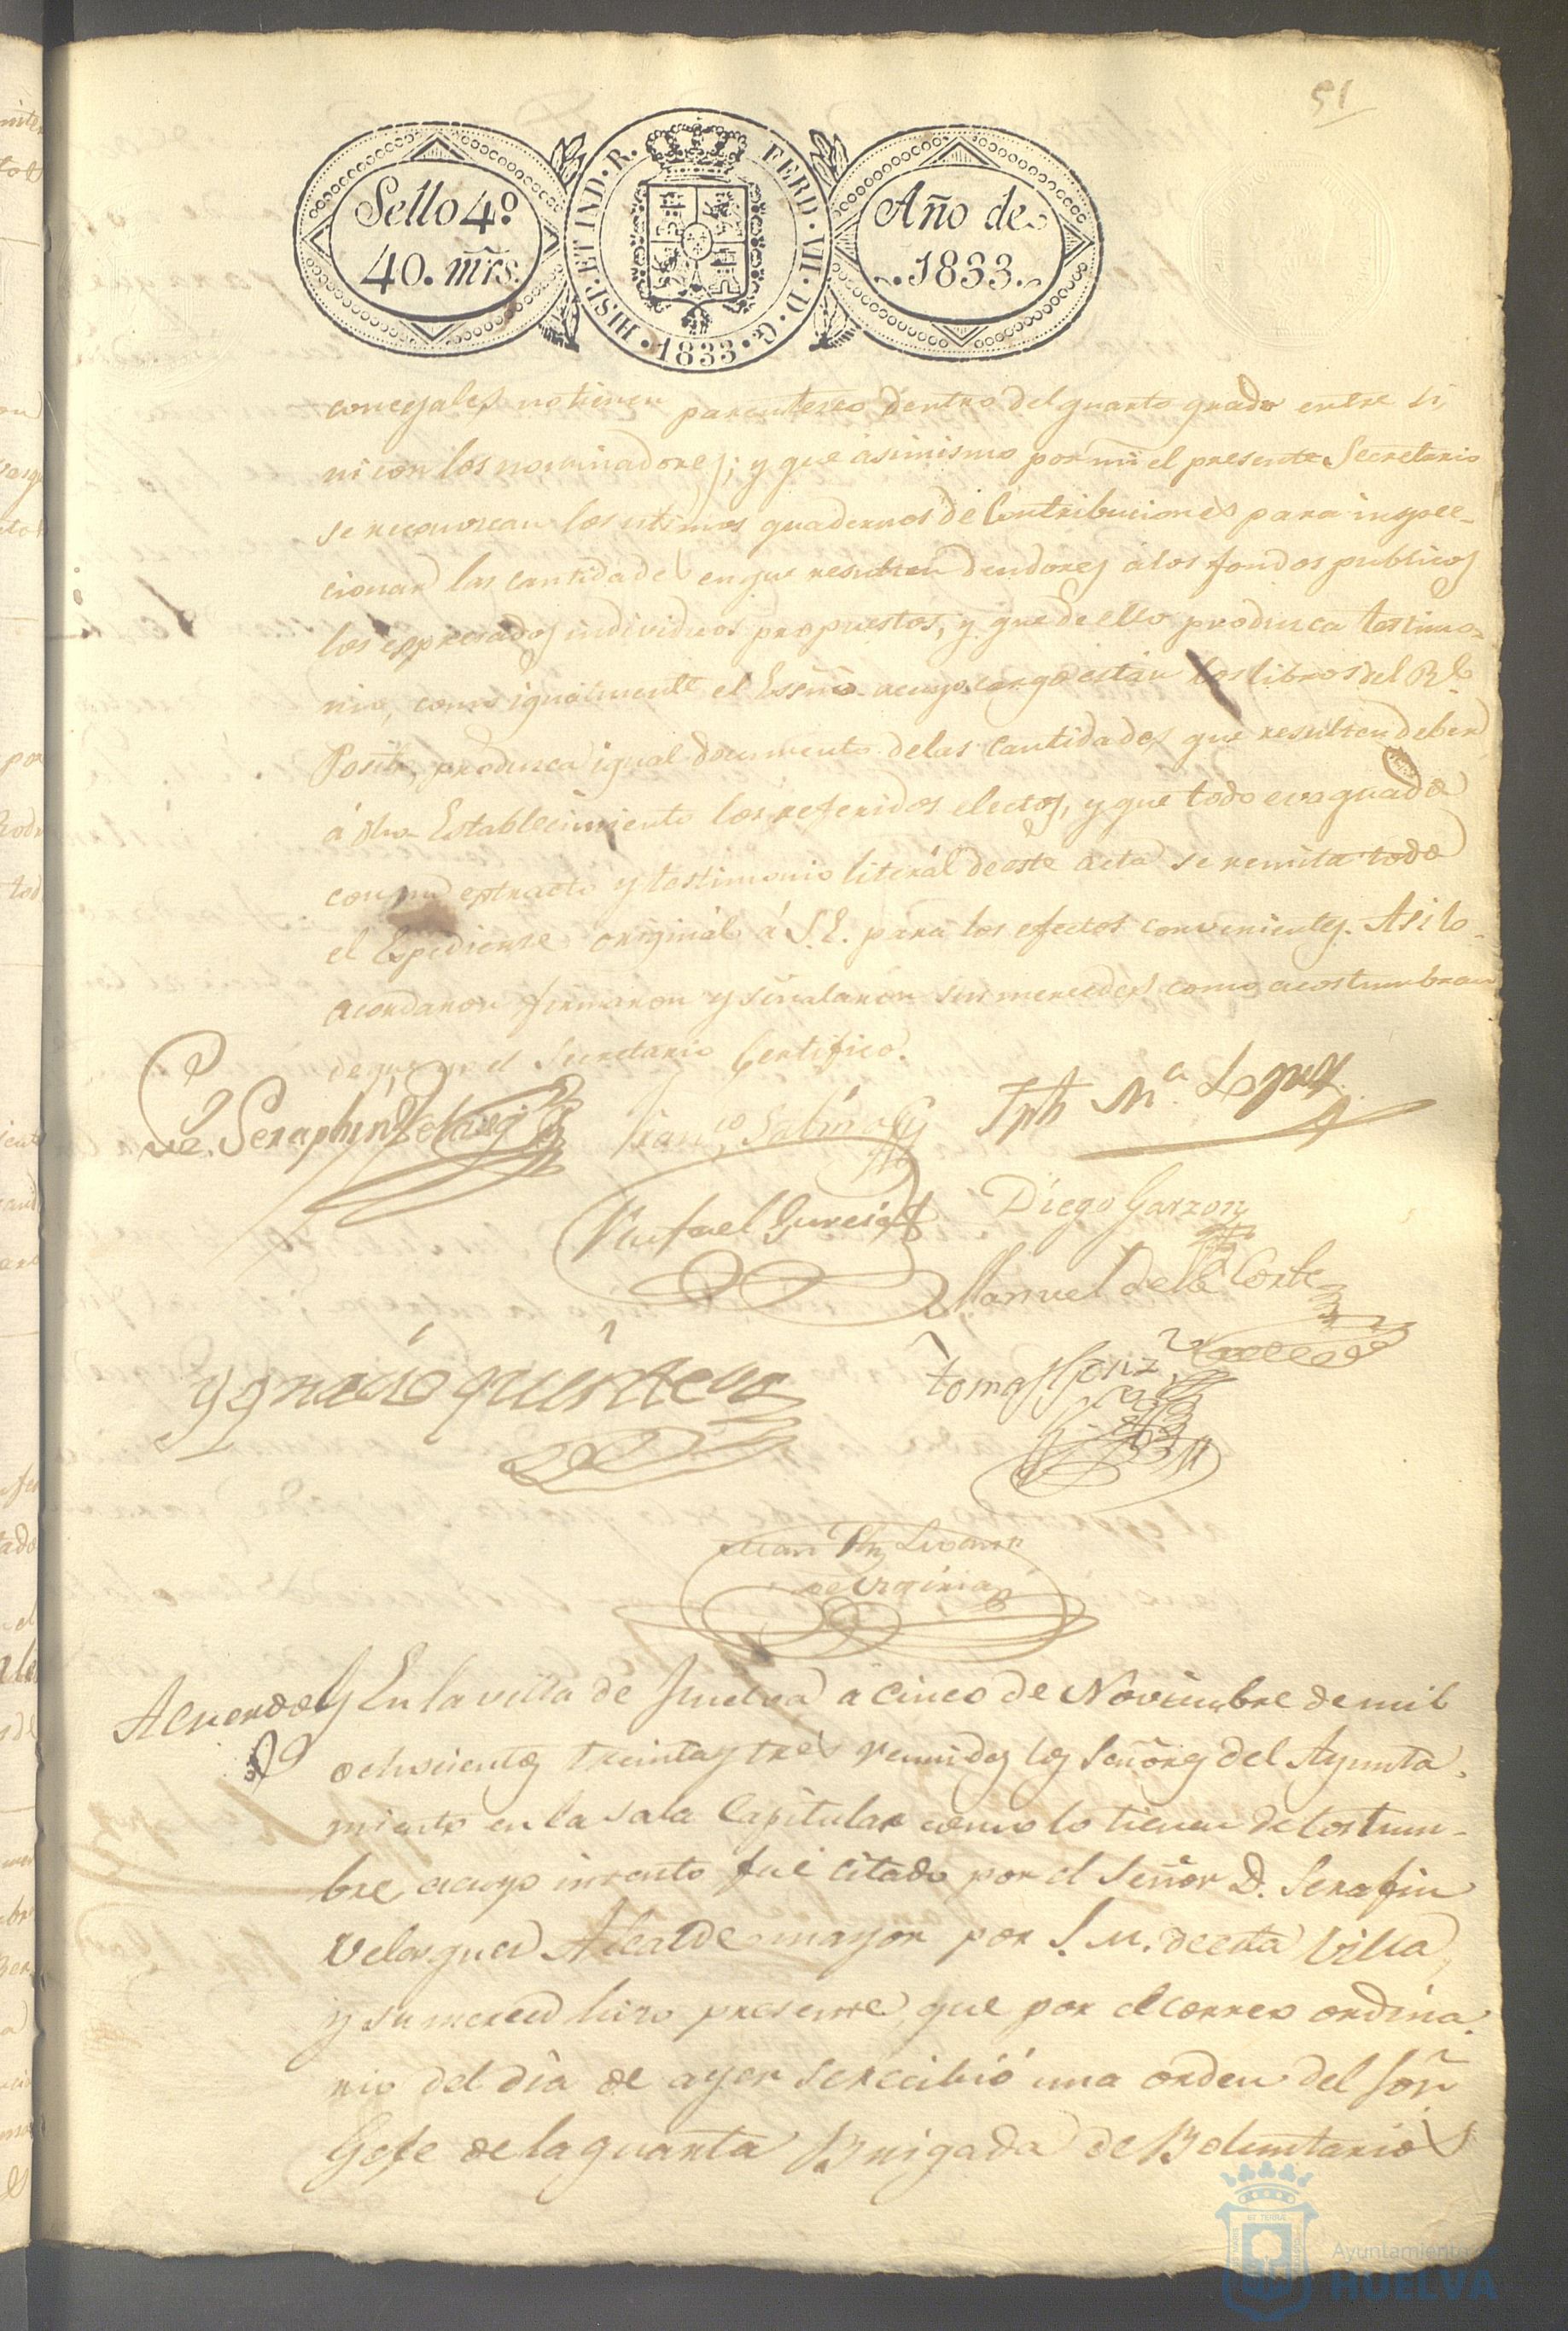 51
Sello 4º
40. mrs.
HISP. ET IND. R. FERD. VII. D. G. 1833.
Año de
1833.
concejales no tienen parentesco dentro del quarto grado entre si,
ni con los nominadores; y que asimismo por mi el presente Secretario
se reconozcan los ultimos quadernos de Contribuciones para inspec-
cionar las cantidades en que resulten deudores á los fondos publicos
los espresados individuos propuestos, y que de ello produzca testimo-
nio, como igualmente el Essño. a cuyo cargo están los libros del Rl.
Posito, produzca igual documento de las cantidades que resulten deber
á dho. Establecimiento los referidos electos, y que todo evaquado
con un estracto y testimonio literál de este acta se remita todo
el Espediente originál á S.E. para los efectos convenientes. Asi lo
acordaron firmaron y señalaron sus mercedes como acostumbran
de que yo el Secretario Certifico.
Seraphin Velazqz
Franco. Salinas
Jph Ma. Lopez
Rafael Garcia
Diego Garzon
Manuel de la Corte
Ygnacio quintero
tomas
Juan
Acuerdo
En la villa de Huelva á cinco de Noviembre de mil
ochocientos treinta y trés reunidos los Señores del Ayunta-
miento en la sala Capitular como lo tienen de costum-
bre a cuyo intento fué citado por el Señor D. Serafin
Velasquez Alcalde mayor por S. M. de esta Villa,
y su merced hizo presente, que por el correo ordina-
rio del dia de ayer se recibió una orden del Sor.
Gefe de la quarta Brigada de Boluntarios
Ayuntamiento
HUELVA